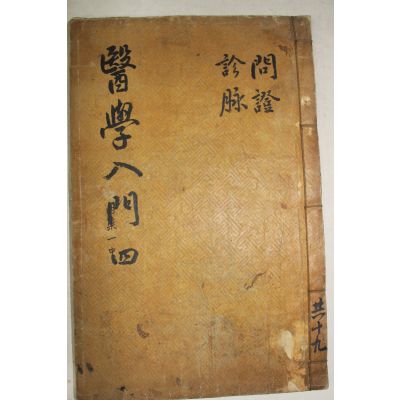 問證
診脉
醫學入門 四
共十九